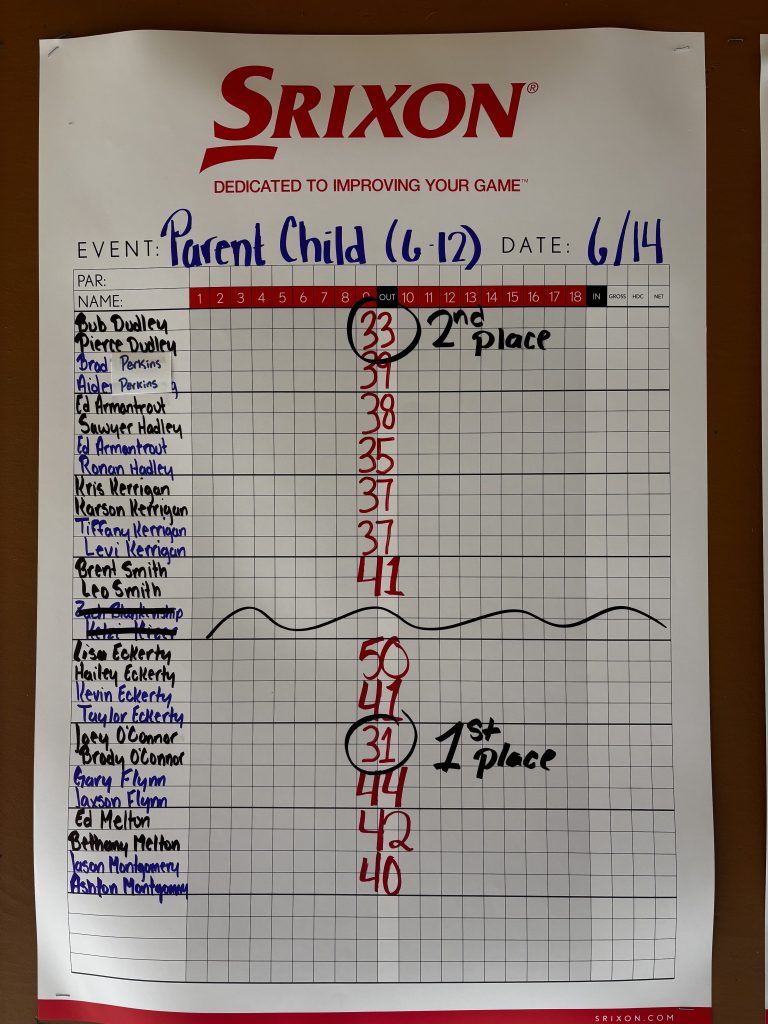 SRIXON®
DEDICATED TO IMPROVING YOUR GAME™
EVENT: Parent Child (6-12) DATE: 6/14
PAR:
NAME: 1 2 3 4 5 6 7 8 9 OUT 10 11 12 13 14 15 16 17 18 IN GROSS HDC NET
Bub Dudley 33 2nd place
Pierce Dudley
Brad Perkins 39
Aiden Perkins
Ed Armantrout 38
Sawyer Hadley
Ed Armantrout 35
Ronan Hadley
Kris Kerrigan 37
Karson Kerrigan
Tiffany Kerrigan 37
Levi Kerrigan
Brent Smith 41
Leo Smith
Zach Blankenship
Lisa Eckerty 50
Hailey Eckerty
Kevin Eckerty 41
Taylor Eckerty
Joey O'Connor 31 1st place
Brody O'Connor
Gary Flynn 44
Jaxson Flynn
Ed Melton 42
Bethany Melton
Jason Montgomery 40
Ashton Montgomery
SRIXON.COM